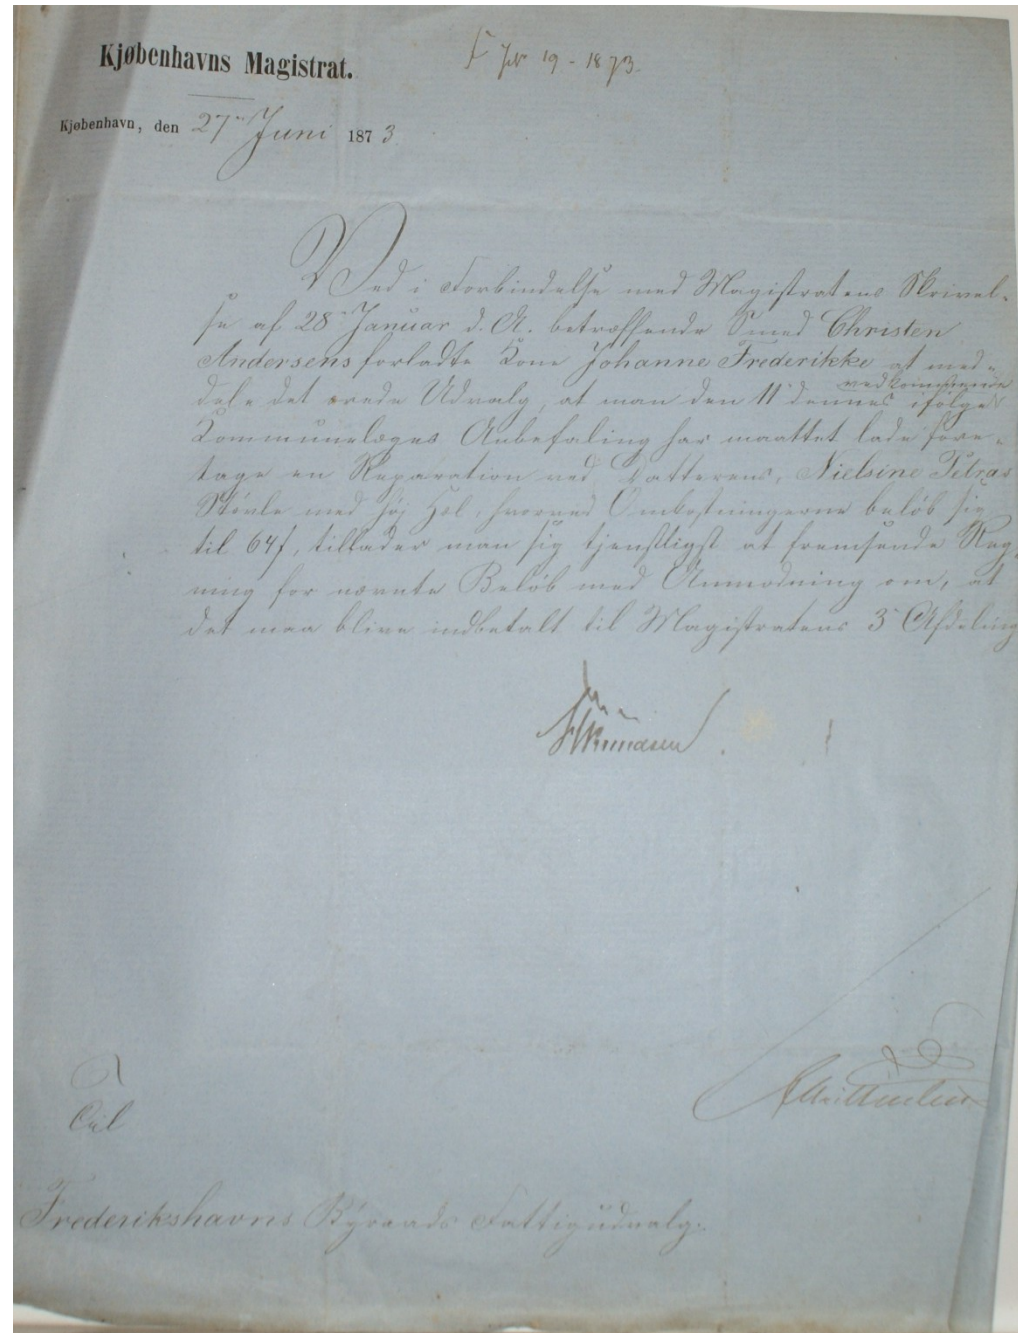 Kjøbenhavns Magistrat.
19 - 1873.
Kjøbenhavn, den 27de Juni 1873
Ved i Forbindelse med Magistratens Skrivel-
se af 28de Januar d. A. betræffende Smed Christen
Andersens forladte Kone Johanne Frederikke at med-
dele det ærede Udvalg, at man den 11te dennes ifølge
vedkommende
Kommunelæges Anbefaling har maattet lade fore-
tage en Reparation ved Datterens, Nielsine Petras
Støvle med høj Hæl, hvorved Omkostningerne beløb sig
til 64 f, tillader man sig tjenstligst at fremsende Reg-
ning for nævnte Beløb med Anmodning om, at
det maa blive indbetalt til Magistratens 3die Afdeling
Til
Frederikshavns Byraads Fattigudvalg.